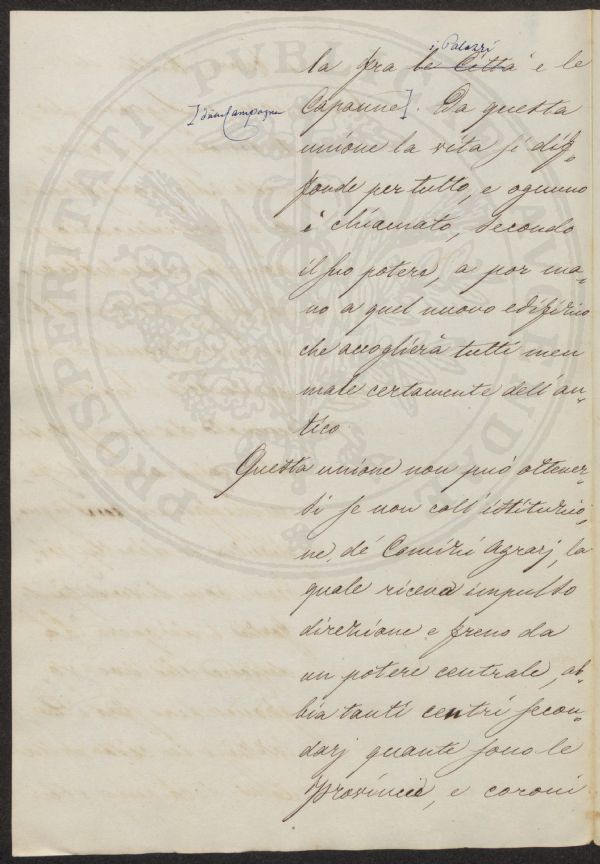 i Palazzi
la fra le Città e le
] dĩn Campagna
Capanne]. Da questa
unione la vita si dif-
fonde per tutto, e ognuno
è chiamato, secondo
il suo potere, a por ma-
no a quel nuovo edifizio
che accoglierà tutti men
male certamente dell'an-
tico
Questa unione non può ottener-
si se non coll'istituzio-
ne de' Comizi Agrarj, la
quale riceva impulso
direzione e freno da
un potere centrale, ab-
bia tanti centri secon-
darj quante sono le
Provincie, e coroni
PROSPERITATI PVBLICAE AVGENDAE